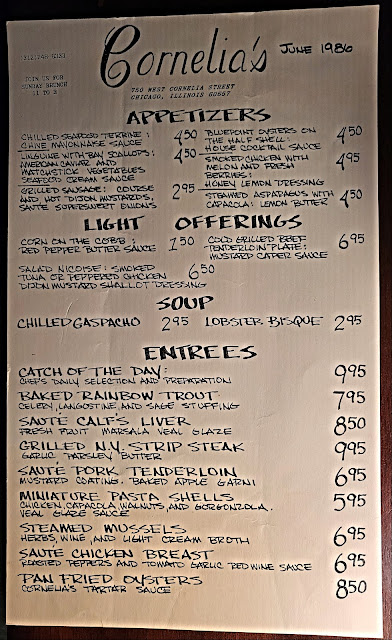 Cornelia's
JUNE 1986
(312) 248-8333
JOIN US FOR
SUNDAY BRUNCH
11 TO 2
750 WEST CORNELIA STREET
CHICAGO, ILLINOIS 60657
APPETIZERS
CHILLED SEAFOOD TERRINE: 4 50
CHIVE MAYONNAISE SAUCE
LINGUINE WITH BAY SCALLOPS: 4 50
AMERICAN CAVIAR AND
MATCHSTICK VEGETABLES
SEAFOOD CREAM SAUCE
GRILLED SAUSAGE: COURSE 2 95
AND HOT DIJON MUSTARDS,
SAUTE SUPERSWEET ONIONS
BLUEPOINT OYSTERS ON 4 50
THE HALF SHELL:
HOUSE COCKTAIL SAUCE
SMOKED CHICKEN WITH 4 95
MELON AND FRESH
BERRIES:
HONEY LEMON DRESSING
STEAMED ASPARAGUS WITH 4 50
CAPACOLA: LEMON BUTTER
LIGHT OFFERINGS
CORN ON THE COBB: 1 50
RED PEPPER BUTTER SAUCE
COLD GRILLED BEEF 6 95
TENDERLOIN PLATE:
MUSTARD CAPER SAUCE
SALAD NICOISE: SMOKED 6 50
TUNA OR PEPPERED CHICKEN
DIJON MUSTARD SHALLOT DRESSING
SOUP
CHILLED GASPACHO 2 95 LOBSTER BISQUE 2 95
ENTREES
CATCH OF THE DAY: 9 95
CHEF'S DAILY SELECTION AND PREPARATION
BAKED RAINBOW TROUT 7 95
CELERY, LANGOSTINE, AND SAGE STUFFING
SAUTE CALF'S LIVER 8 50
FRESH FRUIT MARSALA VEAL GLAZE
GRILLED N.Y. STRIP STEAK 9 95
GARLIC PARSLEY BUTTER
SAUTE PORK TENDERLOIN 6 95
MUSTARD COATING, BAKED APPLE GARNI
MINIATURE PASTA SHELLS 5 95
CHICKEN, CAPACOLA, WALNUTS, AND GORGONZOLA,
VEAL GLAZE SAUCE
STEAMED MUSSELS 6 95
HERBS, WINE, AND LIGHT CREAM BROTH
SAUTE CHICKEN BREAST 6 95
ROASTED PEPPERS AND TOMATO GARLIC RED WINE SAUCE
PAN FRIED OYSTERS 8 50
CORNELIA'S TARTAR SAUCE